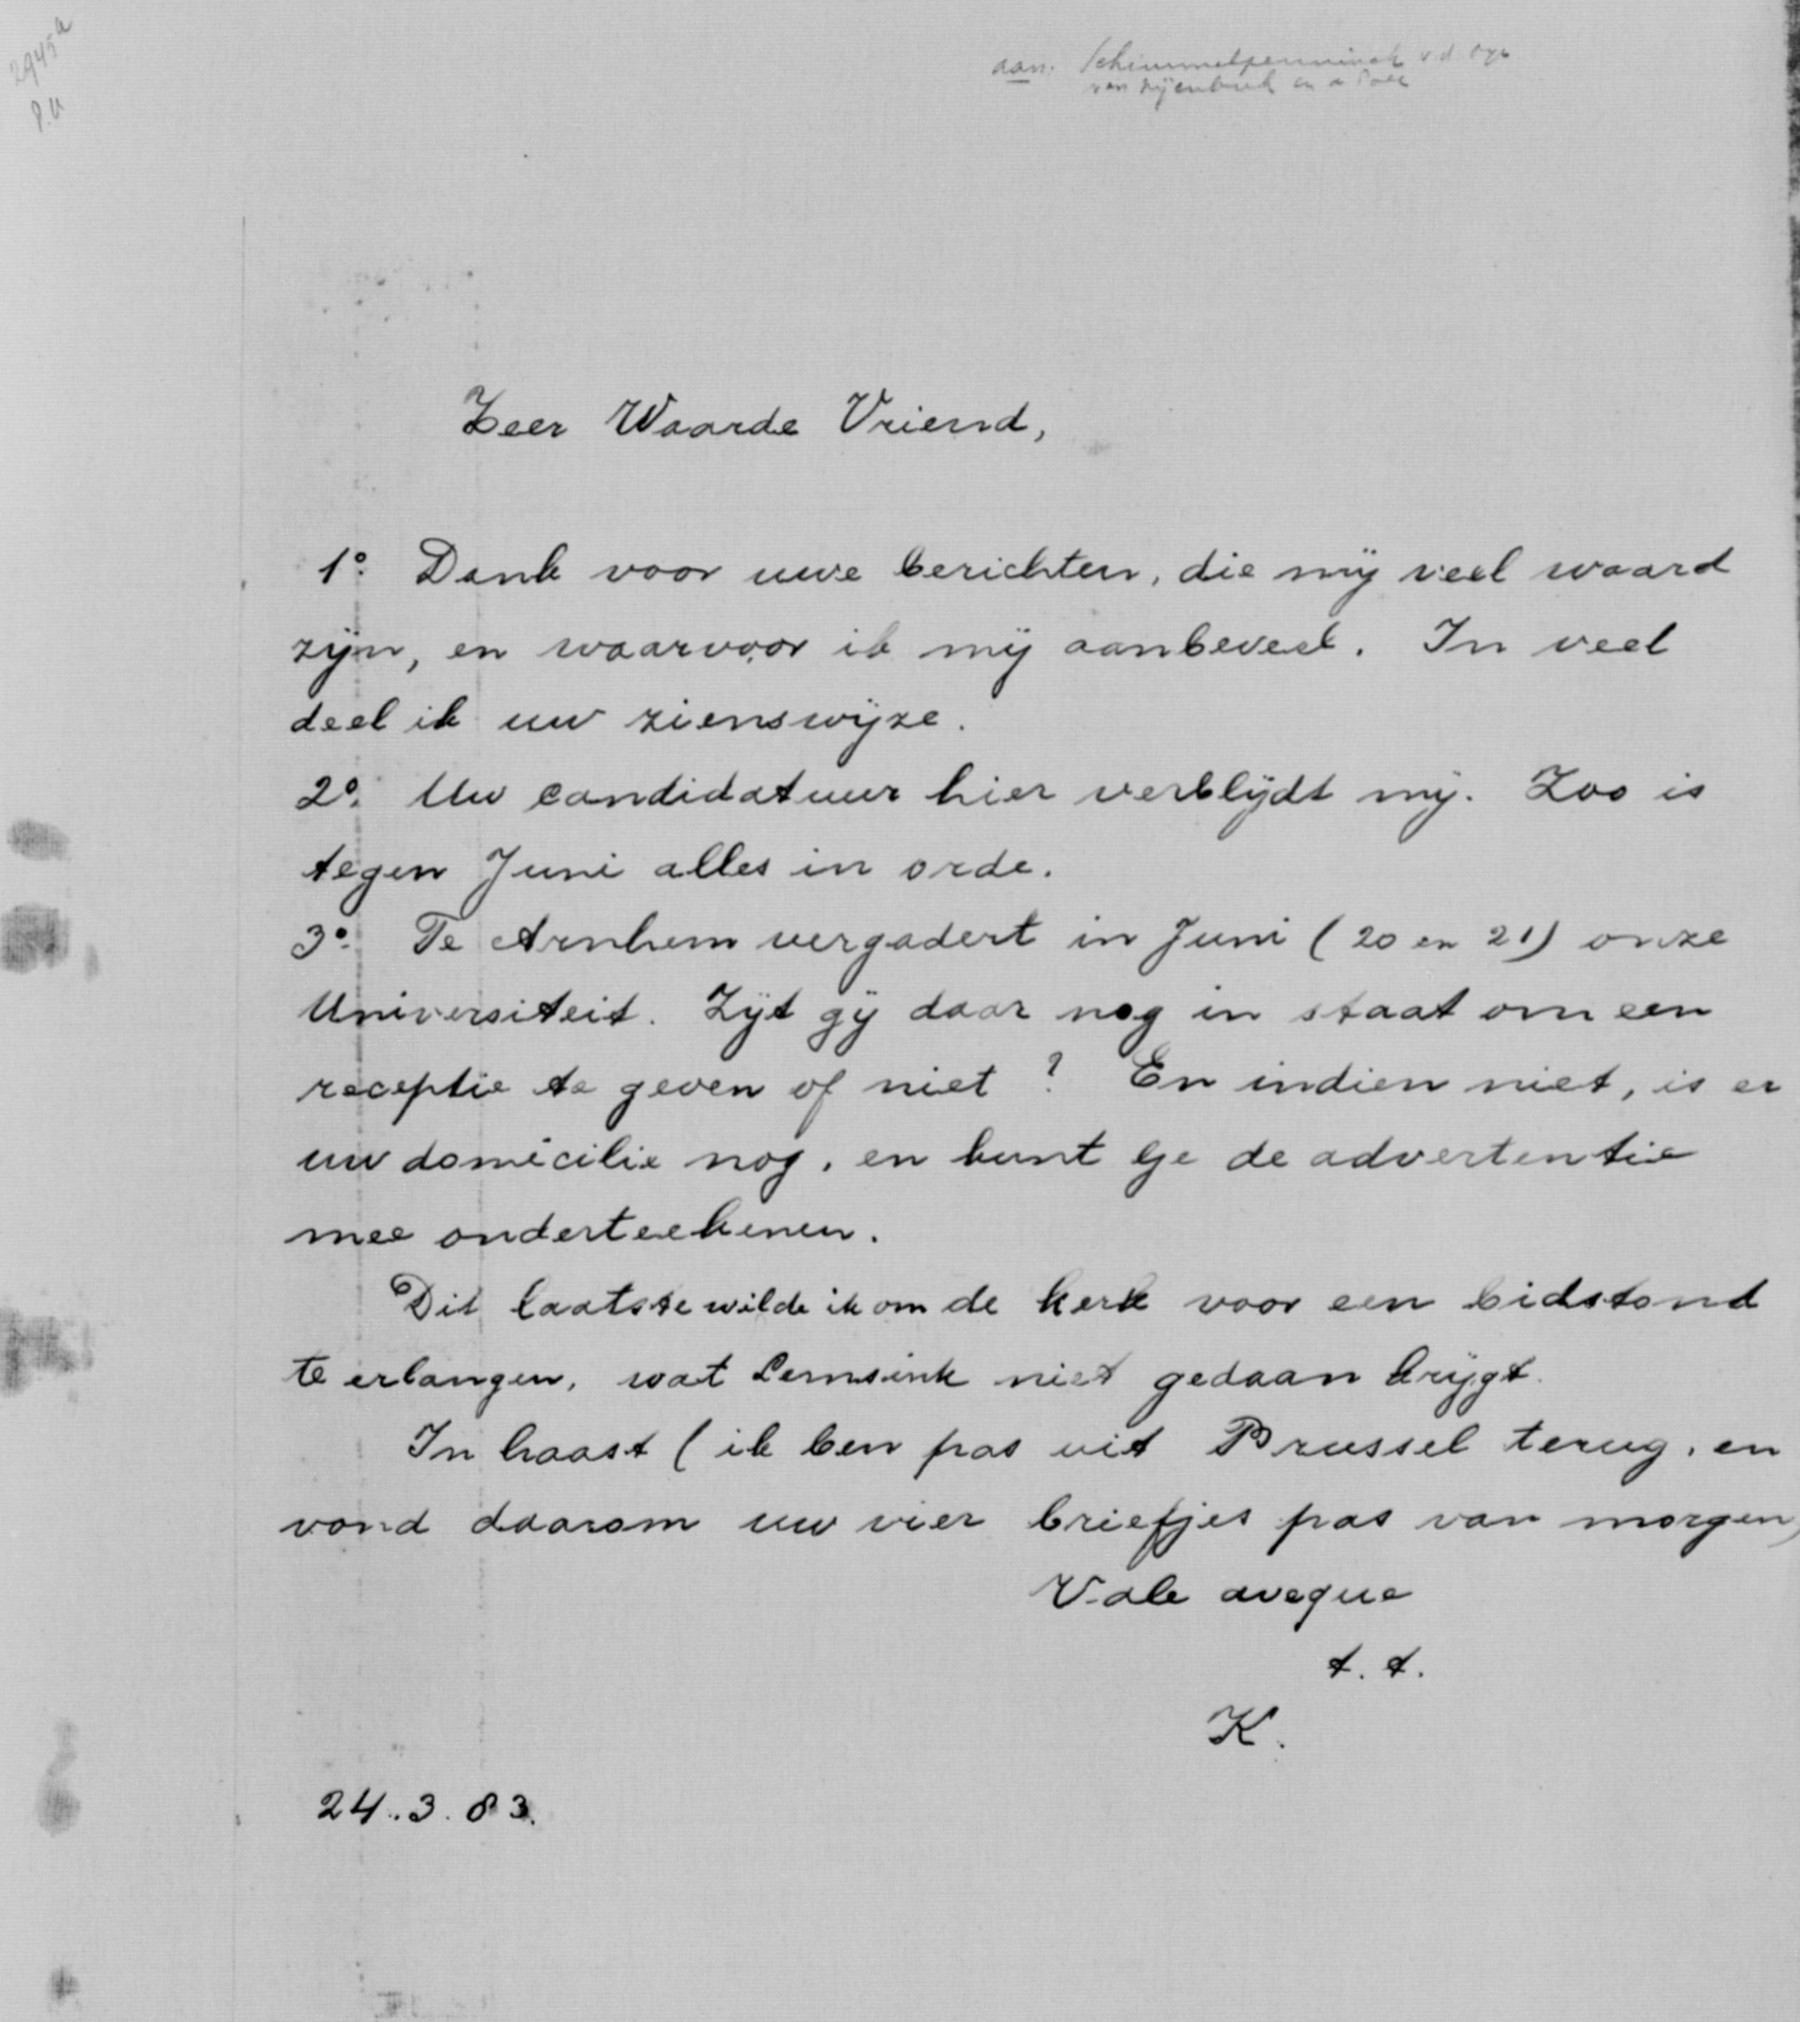 2945a
P.U
aan: Schimmelpenninck v.d. Oye
van Nijenbeek en
Zeer Waarde Vriend,
1o. Dank voor uwe berichten, die mij veel waard
zijn, en waarvoor ik mij aanbeveel. In veel
deel ik uw zienswijze.
2o. Uw candidatuur hier verblijdt mij. Zoo is
tegen Juni alles in orde.
3o. Te Arnhem vergadert in Juni (20 en 21) onze
Universiteit. Zijt gij daar nog in staat om een
receptie te geven of niet? En indien niet, is er
uw domicilie nog, en kunt ge de advertentie
mee onderteekenen.
Dit laatste wilde ik om de kerk voor een bidstond
te erlangen, wat niet gedaan krijgt.
In haast (ik ben pas uit Brussel terug, en
vond daarom uw vier briefjes pas van morgen)
Vale aveque
t. t.
K.
24.. 3. 83.